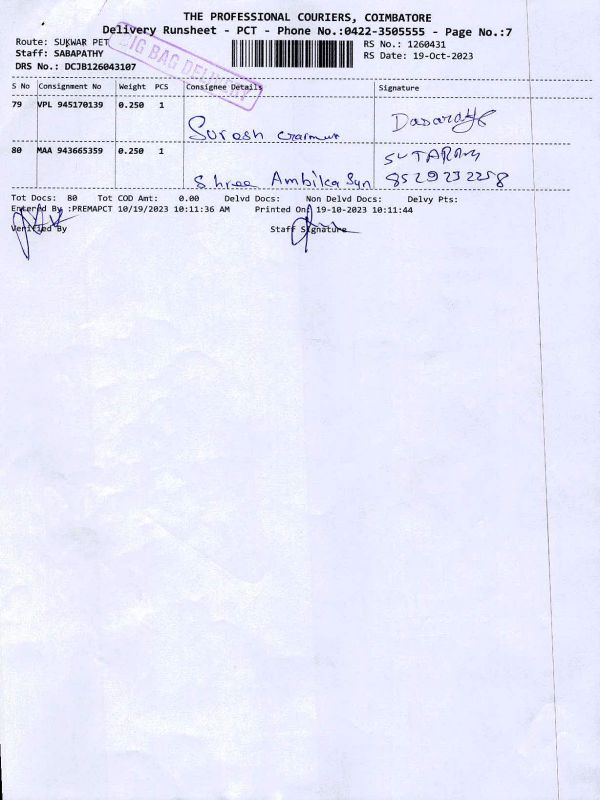 THE PROFESSIONAL COURIERS, COIMBATORE
Delivery Runsheet - PCT - Phone No.:0422-3505555 - Page No.:7
Route: SUKWAR PET
BIG BAG DELIVERY
RS No.: 1260431
Staff: SABAPATHY
RS Date: 19-Oct-2023
DRS No.: DCJB126043107
S No Consignment No Weight PCS Consignee Details Signature
79 VPL 945170139 0.250 1
Suresh Dasarath
80 MAA 943665359 0.250 1
SUTARAM
Shree Ambika Syn 8529232258
Tot Docs: 80 Tot COD Amt: 0.00 Delvd Docs: Non Delvd Docs: Delvy Pts:
Entered By :PREMAPCT 10/19/2023 10:11:36 AM Printed On: 19-10-2023 10:11:44
Verified By Staff Signature